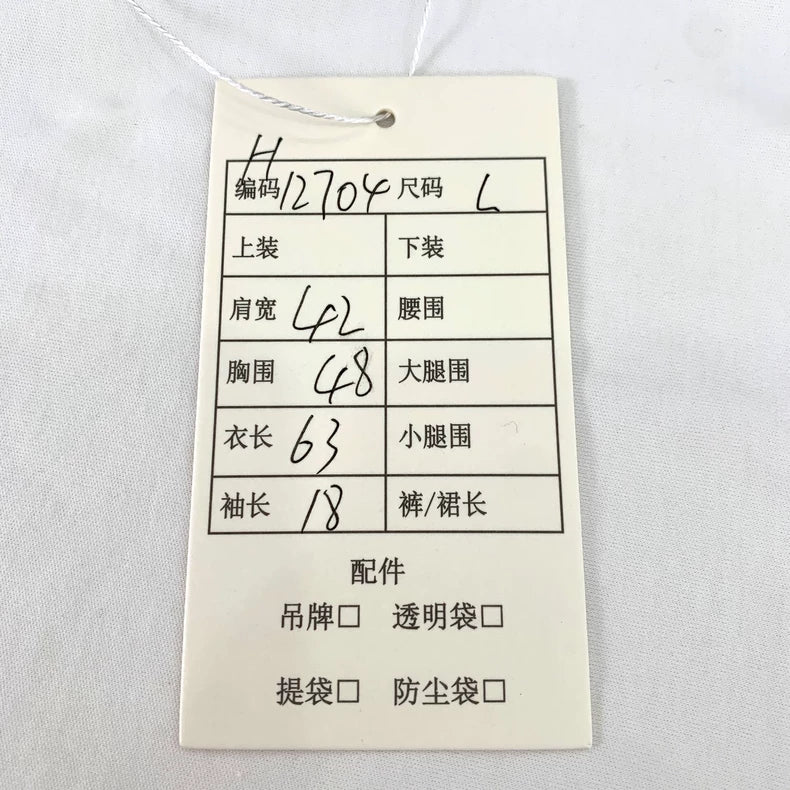 H
编码 12704 尺码 L
上装 下装
肩宽 42 腰围
胸围 48 大腿围
衣长 63 小腿围
袖长 18 裤/裙长
配件
吊牌□ 透明袋□
提袋□ 防尘袋□